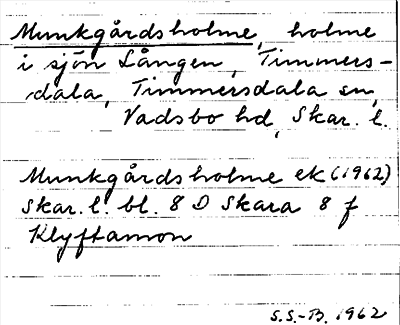 Munkgårdsholme, holme
i sjön Lången, Timmers-
dala, Timmersdala sn,
Vadsbo hd, Skar. l.
Munkgårdsholme ek (1962)
Skar. l. bl. 8 D Skara 8 f
Klyftamon
S.S.-B. 1962